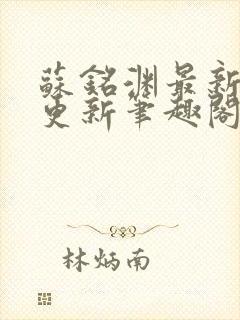 蘇銘渊最新
更新筆趣閣
林炳南